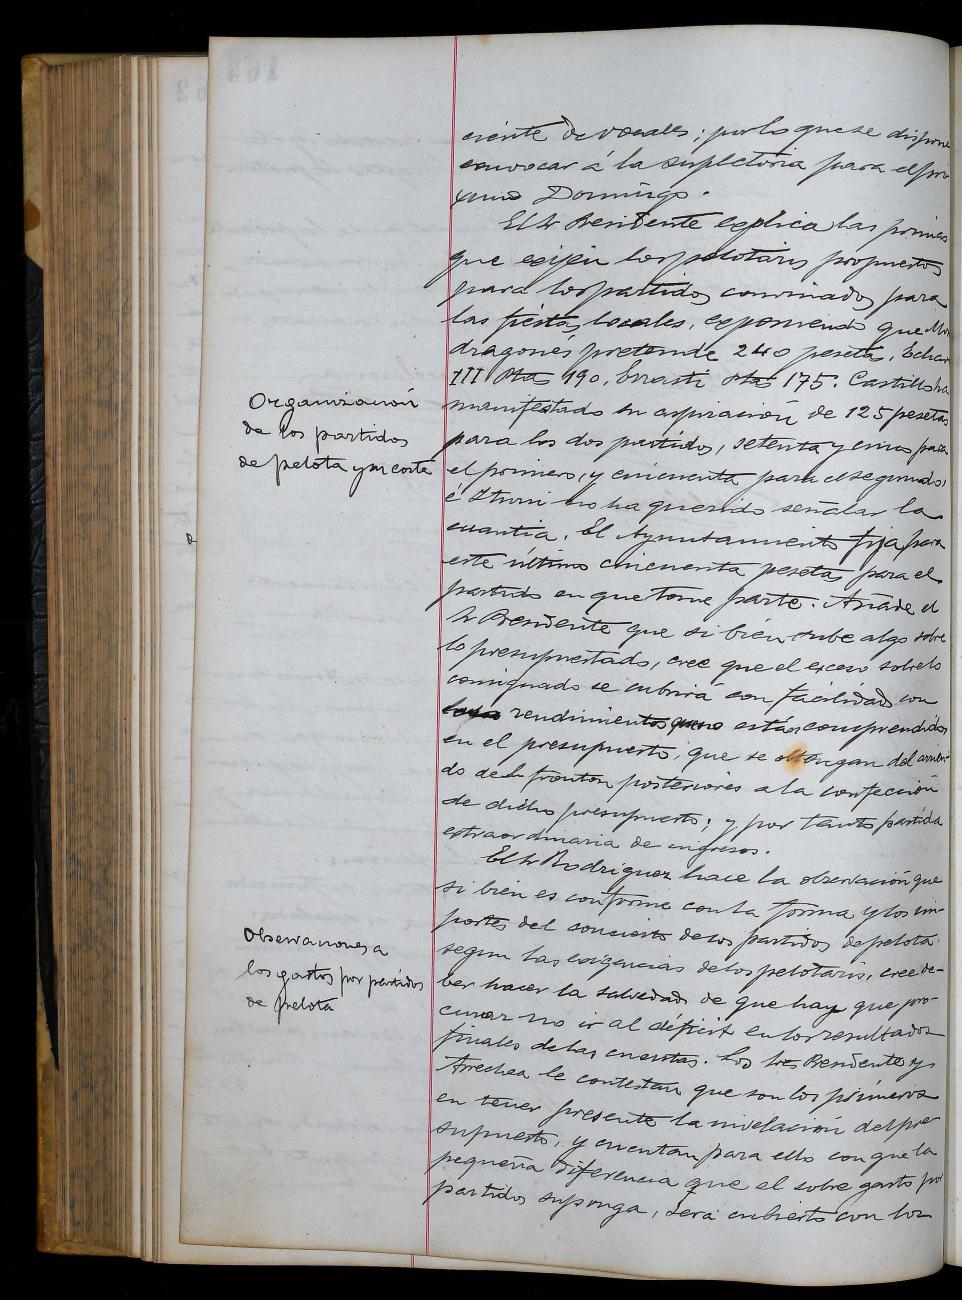 ciente de vocales; por lo que se dispone
convocar á la supletoria para el pró-
ximo Domingo.
El Sr Presidente explica las primas
que exijen los pelotaris propuestos
para los partidos convinados para
las fiestas locales, exponiendo que Mon-
dragonés pretende 240 pesetas, Echave
III Ptas 190, Errasti ptas 175. Castillo ha
manifestado su aspiración de 125 pesetas
para los dos partidos, setenta y cinco para
el primero, y cincuenta para el segundo,
é Ituni no ha querido señalar la
cuantia. El Ayuntamiento fija para
este último cincuenta pesetas para el
partido en que tome parte. Añade el
Sr Presidente que si bien sube algo sobre
lo presupuestado, cree que el exceso sobre lo
consignado se cubrirá con facilidad con
rendimientos que no están comprendidos
en el presupuesto, que se obtengan del arrien-
do del fronton posteriores a la confección
de dicho presupuesto; y por tanto partida
extraordinaria de ingresos.
El Sr Rodriguez hace la observación que
si bien es conforme con la forma y los im-
portes del concierto de los partidos de pelota
segun las exigencias de los pelotaris, cree de-
ber hacer la salvedad de que hay que pro-
curar no ir al déficit en los resultados
finales de las cuentas. Los Sres Presidente y
Arrechea le contestan que son los primeros
en tener presente la nivelación del pre-
supuesto, y cuentan para ello con que la
pequeña diferencia que el sobre gasto por
partidos suponga, será cubierto con los
Organización
de los partidos
de pelota y su coste
Observaciones a
los gastos por partidos
de pelota